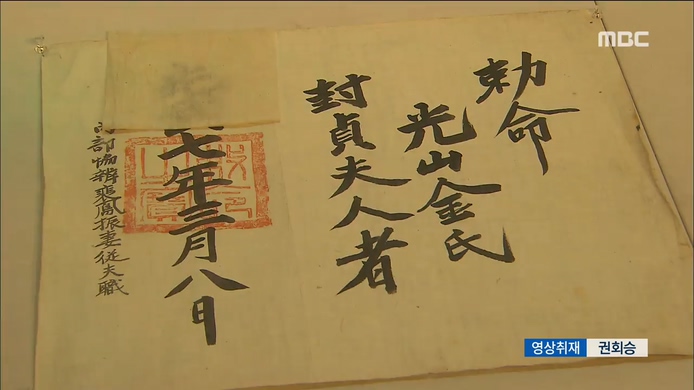 MBC
勅命
光山金氏
封貞夫人者
七年三月八日
部協辨裵鳳振妻從夫職
영상취재 권회승